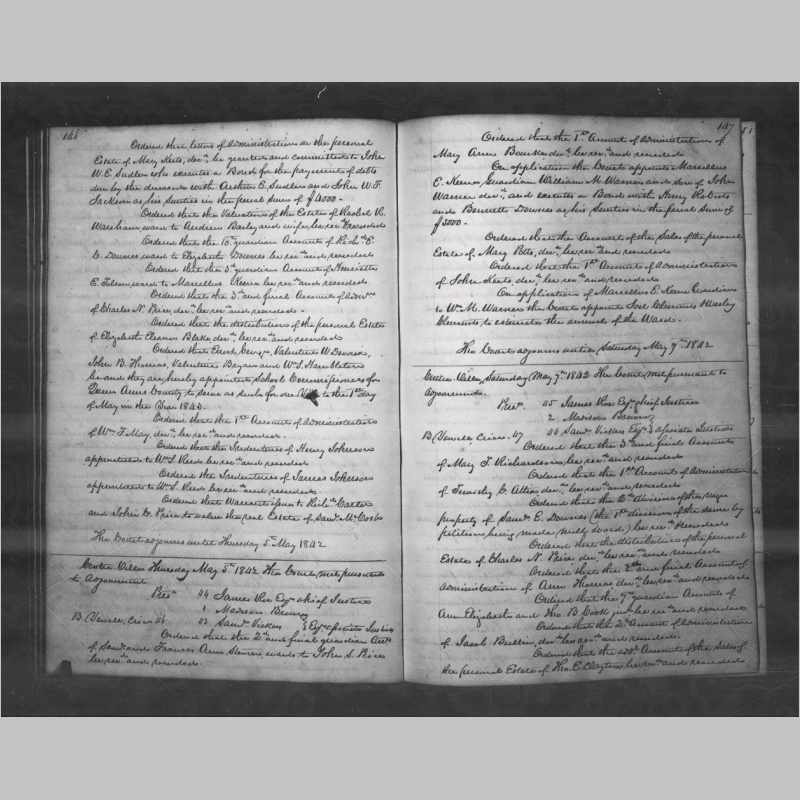 146
Ordered that letters of administration on the personal
Estate of Mary Keets, decd, be granted and committed to John
W. E. Sudler who executes a Bond for the payment of debts
due by the deceased with Arthur E. Sudler and John W. F.
Jackson as his Sureties in the penal sum of $4000.
Ordered that the Valuation of the Estate of R
Wareham ward to Andrew and wife, be recd & recorded
Ordered that the guardian Account of Richd E.
Downes ward to Elizabeth Downes be recd and recorded
Ordered that the 3d guardian Account of Henrietta
E. ward to Marcellus Keene be recd and recorded
Ordered that the 3d and final Account of admn
of Charles N. Price, decd, be recd and recorded.
Ordered that the distribution of the personal Estate
of Elizabeth Eleanor Blake decd, be recd and recorded
Ordered that Enoch George, Valentine W Downes,
John B. Thomas, Valentine Bryan and Wm S. Hambleton
be and they are hereby appointed School Commissioners for
Queen Anns County to serve as such for one to the 1st day
of May in the Year 1843.
Ordered that the 1st Account of administration
of Wm F. May, decd, be recd and recorded.
Ordered that the Indentures of Henry Johnson
apprenticed to W. S. be recd and recorded
Ordered that the Indentures of James Johnson
apprenticed to W. S. be recd and recorded
Ordered that Warrant issue to Richd Carter
and John G. Price to value the real Estate of Saml McCosh
The Court adjourns until Thursday 5th May 1842
Centre Ville Thursday May 5th 1842 The Court met pursuant
to Adjournment
Pres. 44 James Roe Esqr chief Justice
1 Madison Brown
B. Crier 46 43 Saml Vickers } Esqrs associate Justices
Ordered that the 2d and final guardian Acct
of Saml and Frances Ann wards to John S. Price
be recd and recorded.
147
Ordered that the 1st Account of administration of
Mary Ann decd be recd and recorded
On application the Court appoints Marcellus
E. Keene Guardian William M. Warner and Son of John
Warner decd, and executes a Bond with Henry Roberts
and Burnett Downes as his Sureties in the penal Sum of
$3000.
Ordered that the Account of the Sales of the personal
Estate of Mary Potts, decd, be recd and recorded
Ordered that the 1st Account of administration
of John Keets, decd, be recd and recorded
On application of Marcellus E. Keene Guardian
to Wm M. Warner the Court appoints Joel Clements
Clements, to estimate the annual of the Ward.
The Court adjourns until Saturday May 7th 1842
Centre Ville, Saturday May 7th 1842 The Court met pursuant to
adjournment.
Pres. 45 James Roe Esqr chief Justice
2 Madison Brown
B. Crier 47 44 Saml Vickers Esqrs associate Justices
Ordered that the 3d and final Account
of Mary T. Richardson, be recd and recorded
Ordered that the 1st Account of administration
of C. decd, be recd and recorded
Ordered that the division of the negro
property of Saml E. Downes (the 1st division of the same by
petition being made null & void) be recd & recorded
Ordered that the distribution of the personal
Estate of Charles N. Price, decd, be recd and recorded
Ordered that the 2d and final Account of
administration of Ann Thomas decd, be recd and recorded
Ordered that the 7th guardian Account of
Ann Elizabeth and Tho. B. Cook be recd and recorded
Ordered that the 2d Account of administration
of Jacob decd, be recd and recorded.
Ordered that the add. Account of the sales of
the personal Estate of Tho. E. Clayton, be recd and recorded